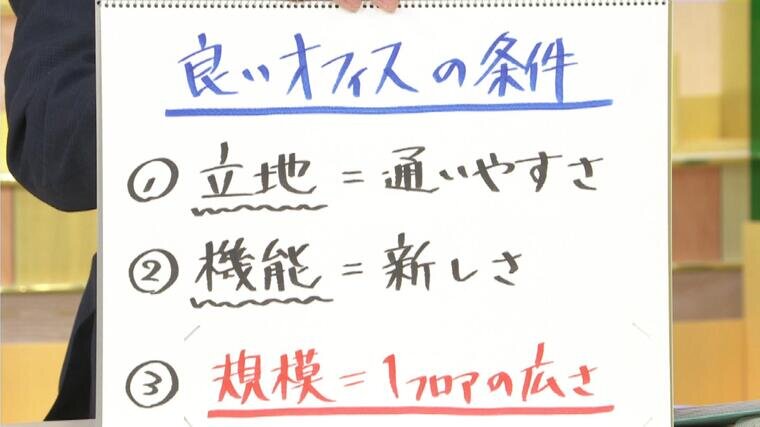 良いオフィスの条件
① 立地 = 通いやすさ
② 機能 = 新しさ
③ 規模 = 1フロアの広さ